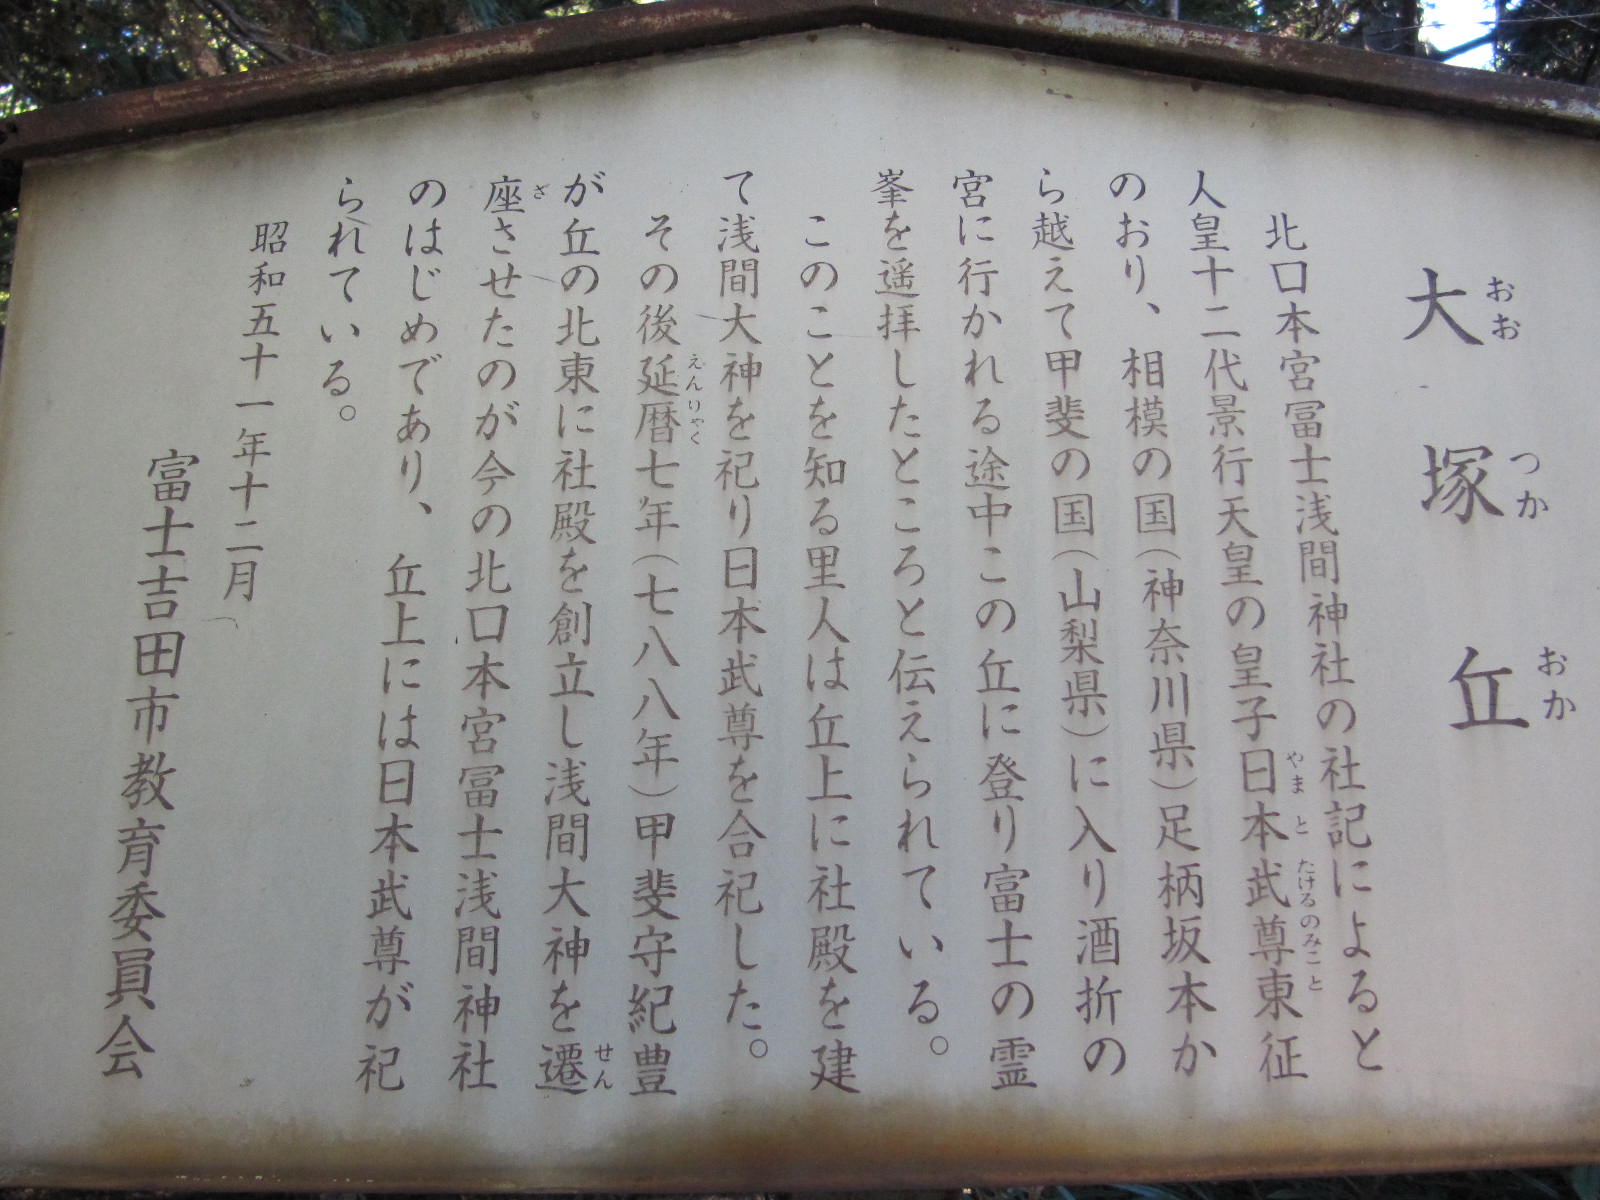 大塚丘
おおつかおか
北口本宮冨士浅間神社の社記によると
人皇十二代景行天皇の皇子日本武尊東征
やまとたけるのみこと
のおり、相模の国(神奈川県)足柄坂本か
ら越えて甲斐の国(山梨県)に入り酒折の
宮に行かれる途中この丘に登り富士の霊
峯を遥拝したところと伝えられている。
このことを知る里人は丘上に社殿を建
て浅間大神を祀り日本武尊を合祀した。
その後延暦七年(七八八年)甲斐守紀豊
えんりゃく
が丘の北東に社殿を創立し浅間大神を遷
せん
座させたのが今の北口本宮冨士浅間神社
ざ
のはじめであり、丘上には日本武尊が祀
られている。
昭和五十一年十二月
富士吉田市教育委員会